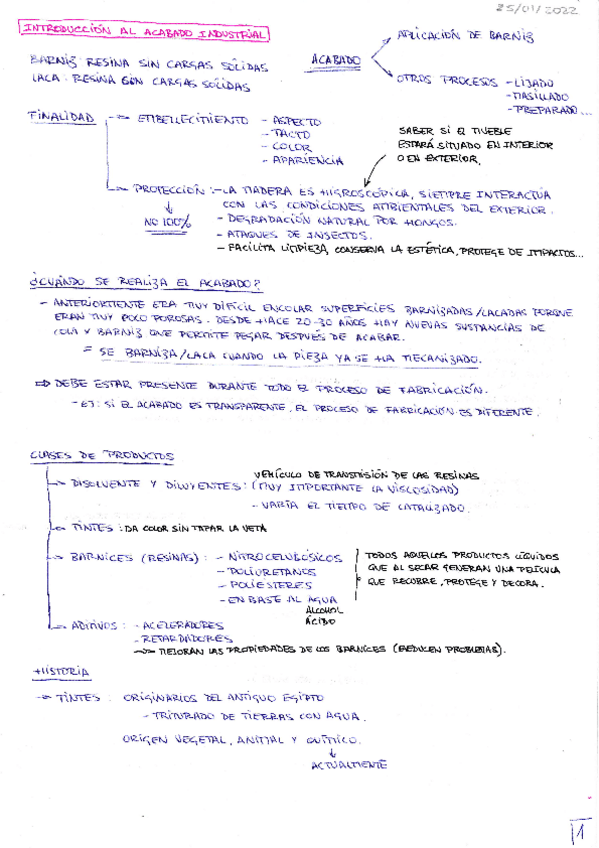 25/01/2022
INTRODUCCIÓN AL ACABADO INDUSTRIAL
BARNIZ: RESINA SIN CARGAS SÓLIDAS
LACA: RESINA CON CARGAS SÓLIDAS
ACABADO
APLICACIÓN DE BARNIZ
OTROS PROCESOS - LIJADO
- MASILLADO
- PREPARADO...
FINALIDAD
EMBELLECIMIENTO - ASPECTO
- TACTO
- COLOR
- APARIENCIA
SABER SI EL MUEBLE
ESTARÁ SITUADO EN INTERIOR
O EN EXTERIOR.
PROTECCIÓN: - LA MADERA ES HIGROSCÓPICA, SIEMPRE INTERACTUA
CON LAS CONDICIONES AMBIENTALES DEL EXTERIOR.
NO 100%
- DEGRADACIÓN NATURAL POR HONGOS.
- ATAQUES DE INSECTOS.
- FACILITA LIMPIEZA, CONSERVA LA ESTÉTICA, PROTEGE DE IMPACTOS...
¿CUÁNDO SE REALIZA EL ACABADO?
- ANTERIORMENTE ERA MUY DIFÍCIL ENCOLAR SUPERFICIES BARNIZADAS/LACADAS PORQUE
ERAN MUY POCO POROSAS. DESDE HACE 20-30 AÑOS HAY NUEVAS SUSTANCIAS DE
COLA Y BARNIZ QUE PERMITE PEGAR DESPUÉS DE ACABAR.
= SE BARNIZA/LACA CUANDO LA PIEZA YA SE HA MECANIZADO.
⇒ DEBE ESTAR PRESENTE DURANTE TODO EL PROCESO DE FABRICACIÓN.
- EJ: SI EL ACABADO ES TRANSPARENTE, EL PROCESO DE FABRICACIÓN ES DIFERENTE.
CLASES DE PRODUCTOS
VEHÍCULO DE TRANSMISIÓN DE LAS RESINAS
DISOLVENTE Y DILUYENTES: (MUY IMPORTANTE LA VISCOSIDAD)
- VARÍA EL TIEMPO DE CATALIZADO.
TINTES: DA COLOR SIN TAPAR LA VETA
BARNICES (RESINAS): - NITROCELULÓSICOS
- POLIURETANOS
- POLIÉSTERES
- EN BASE AL AGUA
ALCOHOL
ÁCIDO
TODOS AQUELLOS PRODUCTOS LÍQUIDOS
QUE AL SECAR GENERAN UNA PELÍCULA
QUE RECUBRE, PROTEGE Y DECORA.
ADITIVOS: - ACELERADORES
- RETARDADORES
→ MEJORAN LAS PROPIEDADES DE LOS BARNICES (REDUCEN PROBLEMAS).
HISTORIA
→ TINTES: ORIGINARIOS DEL ANTIGUO EGIPTO
- TRITURADO DE TIERRAS CON AGUA.
ORIGEN VEGETAL, ANIMAL Y QUÍMICO.
ACTUALMENTE
1